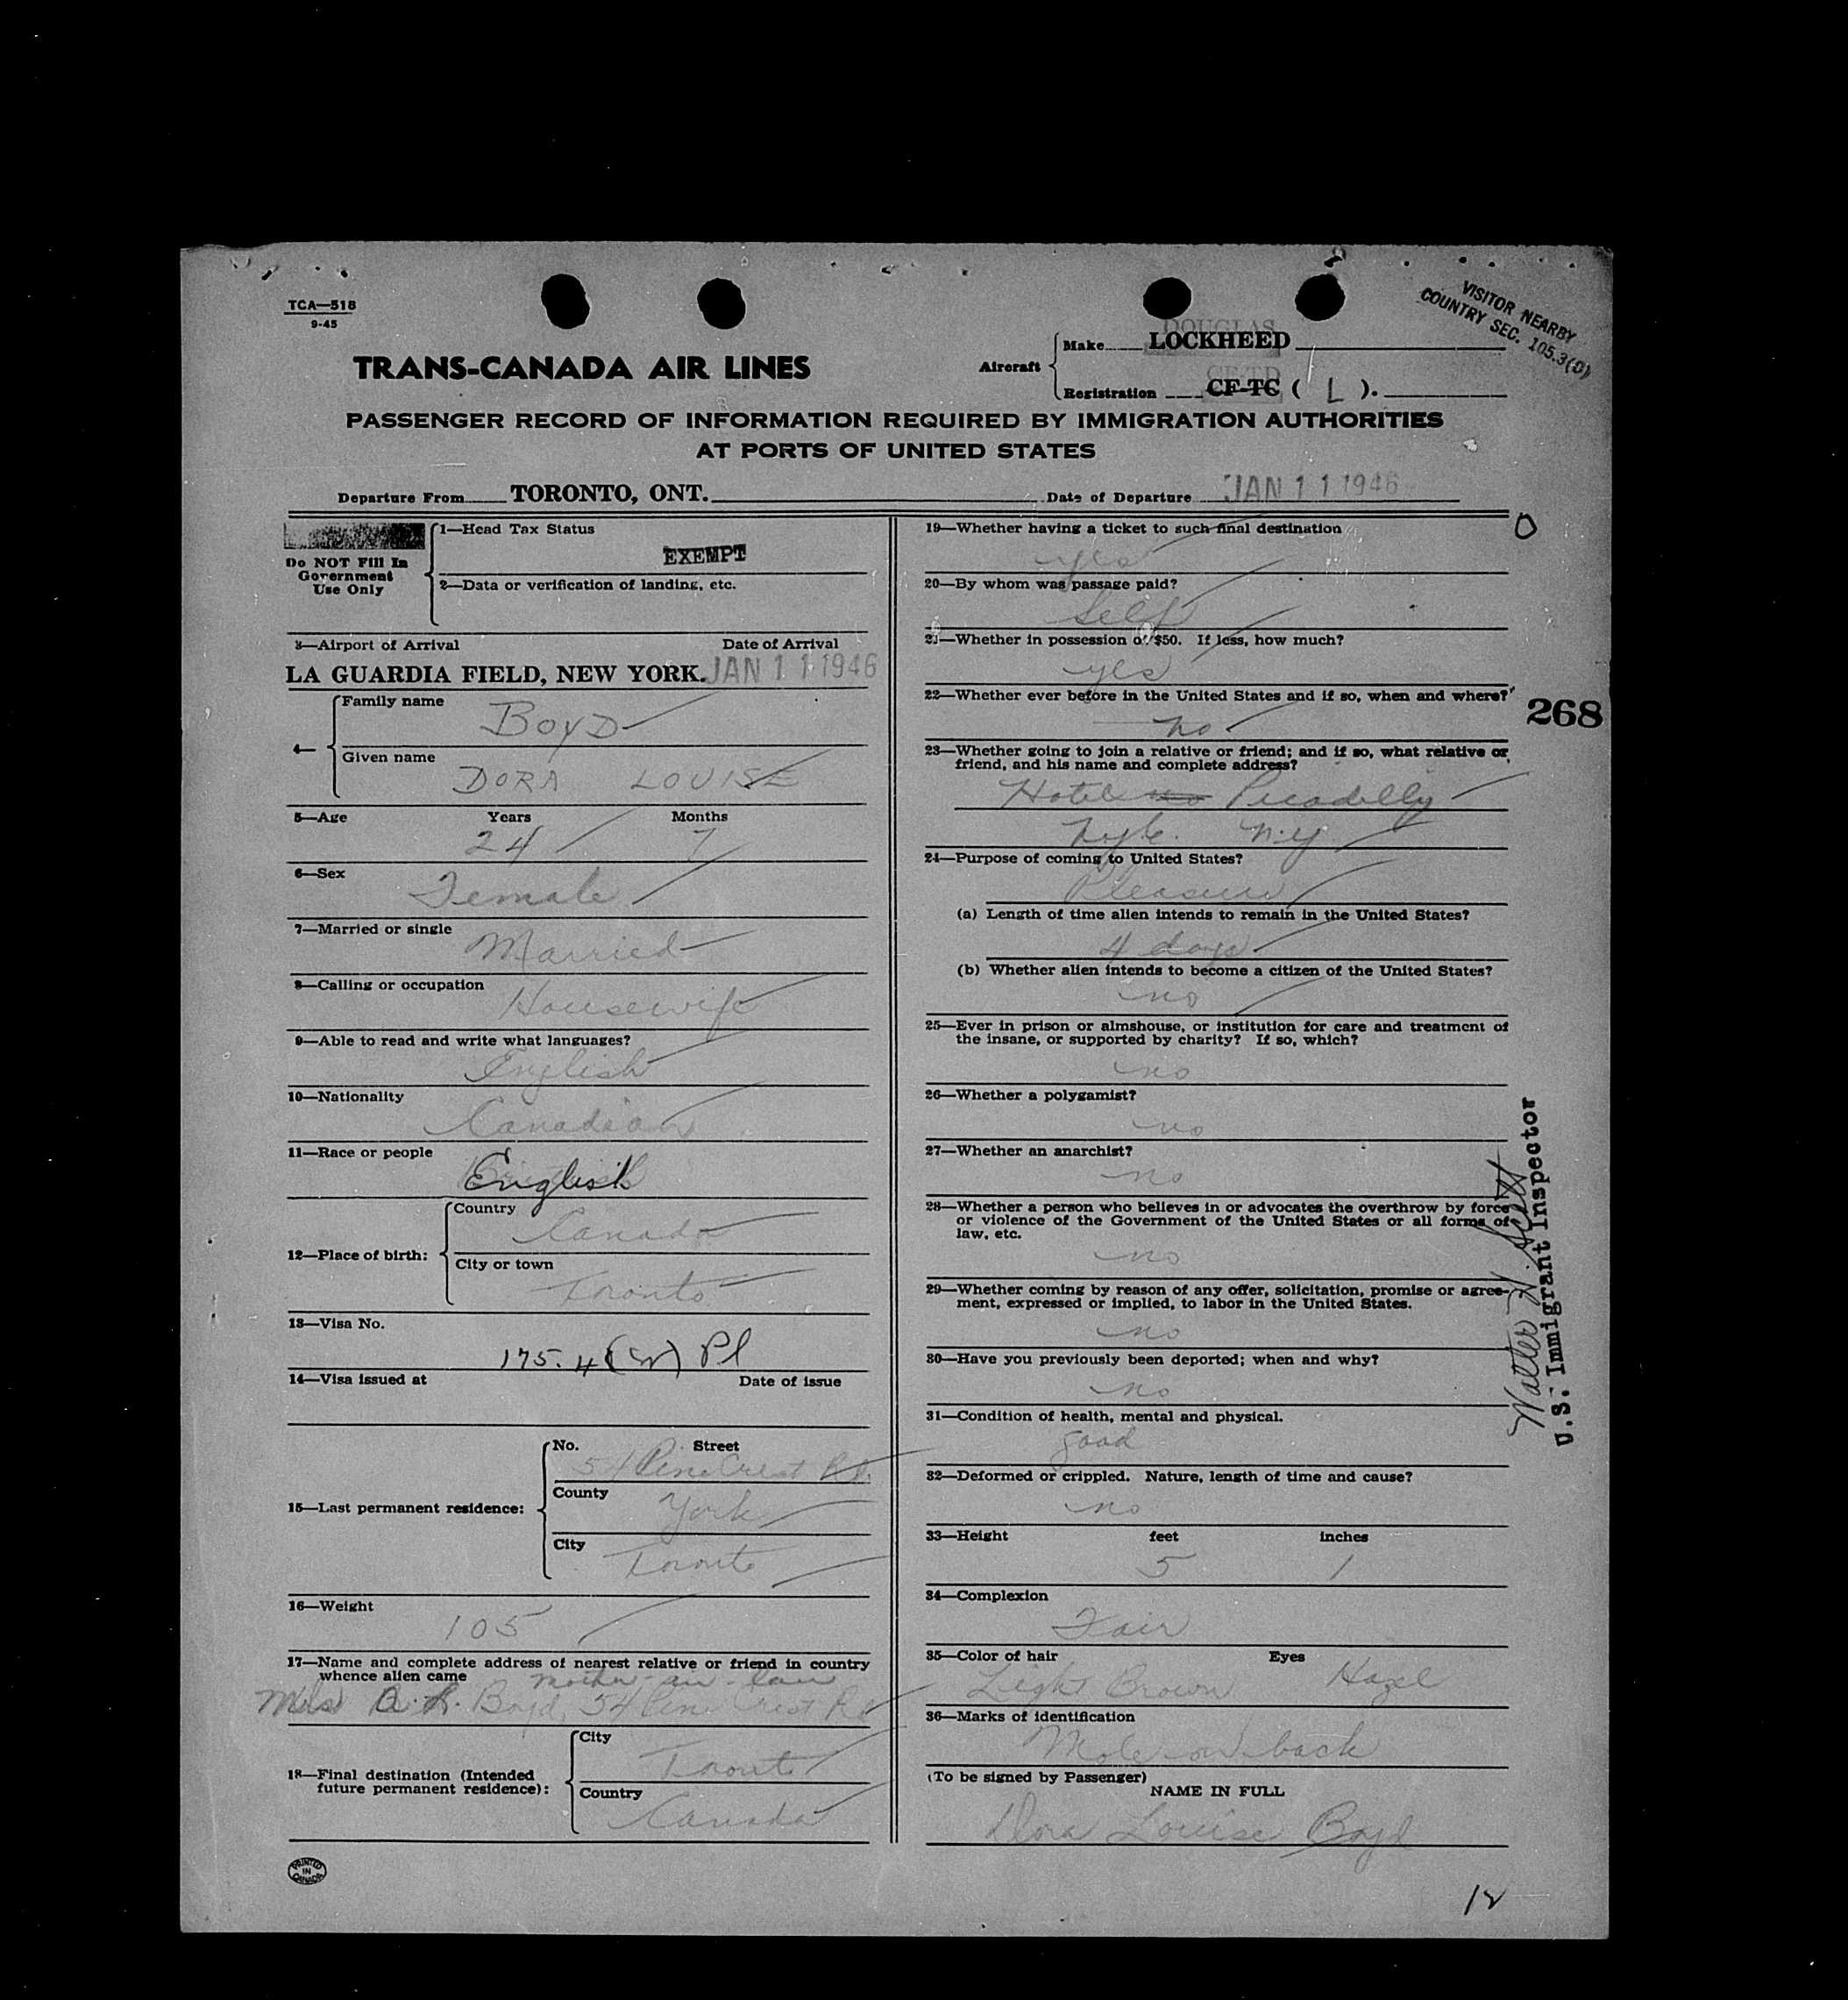 TCA—518
9-45
VISITOR NEARBY
COUNTRY SEC. 105.3(D)
TRANS-CANADA AIR LINES
Aircraft
DOUGLAS
Make LOCKHEED
CF-TD
Registration CF-TC ( L ).
PASSENGER RECORD OF INFORMATION REQUIRED BY IMMIGRATION AUTHORITIES
AT PORTS OF UNITED STATES
Departure From TORONTO, ONT. Date of Departure JAN 11 1946
Do NOT Fill In
Government
Use Only
1—Head Tax Status
EXEMPT
2—Data or verification of landing, etc.
3—Airport of Arrival Date of Arrival
LA GUARDIA FIELD, NEW YORK. JAN 11 1946
4—
Family name
BOYD
Given name
DORA LOUISE
5—Age Years Months
24 7
6—Sex
Female
7—Married or single
Married
8—Calling or occupation
Housewife
9—Able to read and write what languages?
English
10—Nationality
Canadian
11—Race or people
English
12—Place of birth:
Country
Canada
City or town
Toronto
13—Visa No.
175.4 Pl
14—Visa issued at Date of issue
15—Last permanent residence:
No. Street
54 Pine Crest Rd.
County
York
City
Toronto
16—Weight
105
17—Name and complete address of nearest relative or friend in country
whence alien came mother-in-law
Boyd, 54 Pine Crest Rd
18—Final destination (Intended
future permanent residence):
City
Toronto
Country
Canada
PRINTED
IN
CANADA
19—Whether having a ticket to such final destination
yes
20—By whom was passage paid?
Self
21—Whether in possession of $50. If less, how much?
yes
22—Whether ever before in the United States and if so, when and where?
no
23—Whether going to join a relative or friend; and if so, what relative or
friend, and his name and complete address?
Hotel Picadelly
N.Y.
24—Purpose of coming to United States?
Pleasure
(a) Length of time alien intends to remain in the United States?
4 days
(b) Whether alien intends to become a citizen of the United States?
no
25—Ever in prison or almshouse, or institution for care and treatment of
the insane, or supported by charity? If so, which?
no
26—Whether a polygamist?
no
27—Whether an anarchist?
no
28—Whether a person who believes in or advocates the overthrow by force
or violence of the Government of the United States or all forms of
law, etc.
no
29—Whether coming by reason of any offer, solicitation, promise or agree-
ment, expressed or implied, to labor in the United States.
no
30—Have you previously been deported; when and why?
no
31—Condition of health, mental and physical.
good
32—Deformed or crippled. Nature, length of time and cause?
no
33—Height feet inches
5 1
34—Complexion
Fair
35—Color of hair Eyes
Light Brown Hazel
36—Marks of identification
Mole on back
(To be signed by Passenger)
NAME IN FULL
Dora Louise Boyd
268
Walter
U.S. Immigrant Inspector
12